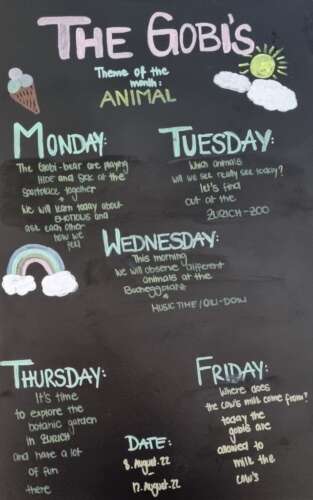 THE GOBI'S
Theme of the
month:
ANIMAL
MONDAY:
The Gobi-bear are playing
HIDE and SEEK at the
Sportplace together
+
We will learn today about
EMOTIONS and
ask each other
how we
feel
TUESDAY:
Which animals
will we see really see today?
Let's find
out at the
ZURICH-ZOO
WEDNESDAY:
This morning
we will observe different
animals at the
Bucheggplatz
&
MUSIC TIME
THURSDAY:
It's time
to explore the
botanic garden
in ZURICH
and have a lot
of fun
there
FRIDAY:
Where does
the cow's milk come from?
today the
gobis are
allowed to
milk the
cow's
DATE:
8. August. 22
12. August. 22